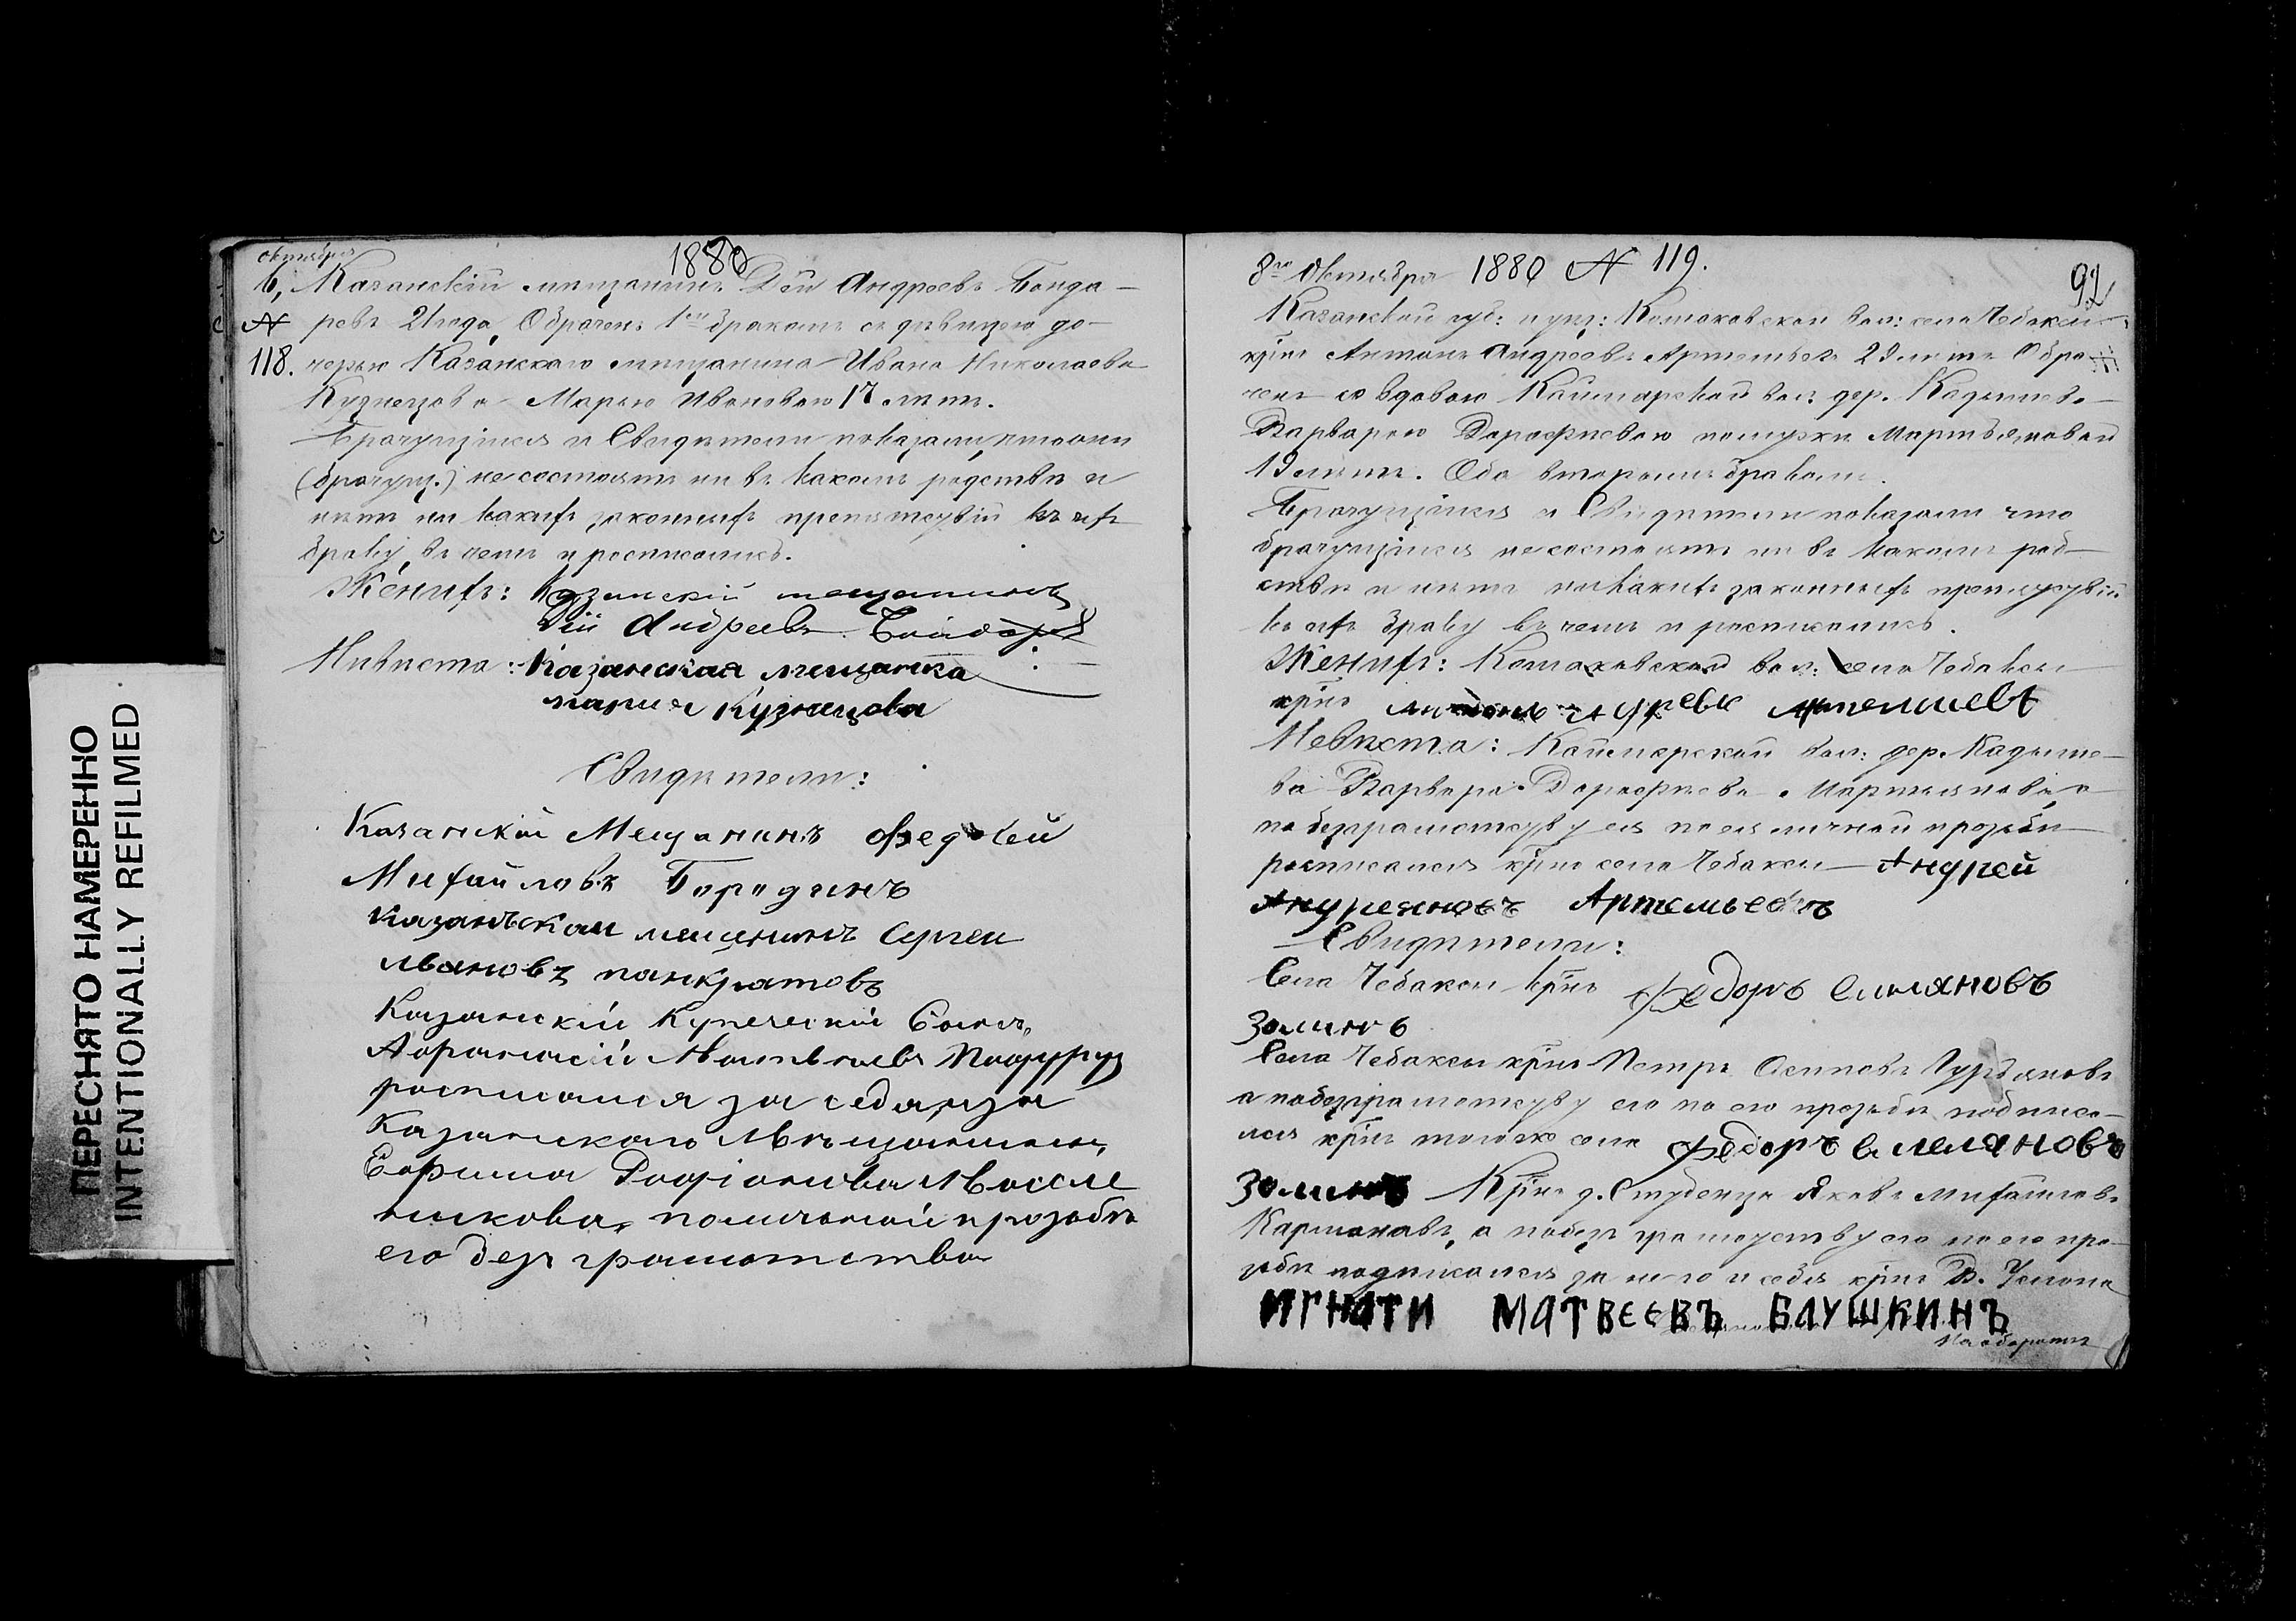 ПЕРЕСНЯТО НАМЕРЕННО
INTENTIONALLY REFILMED
октября
1880
6, Казанскiй мѣщанинъ Дiй Андреевъ Бонда-
№ ревъ 21 года, Обрачен 1мъ бракомъ съ дѣвицею до-
118. черью Казанскаго мѣщанина Ивана Николаева
Кузнецова Марьею Ивановною 17 лѣтъ.
Брачущiеся и Свидѣтели показали, что они
(брачущ.) не состоятъ ни въ какомъ родствѣ и
нѣтъ ни какихъ законныхъ препятствiй къ ихъ
браку, въ чемъ и росписались.
Женихъ: Казанскiй мещанинъ
Дiй Андреевъ Бондаревъ
Нивѣста: Казанская мещанка
мария Кузнецова
Свидѣтели:
Казанской Мещанинъ
Михайловъ Бородинъ
казанъскай мещенинъ Сергеи
панкратовъ
Казанскiй Купеческiй Сынъ,
Афранасiй
росписался за себя, и за
Казанскаго Мѣщанина,
Ефима Родiонова Масле
никова, по личьной прозьбѣ
его без грамотства
8го Октября 1880 № 119.
92
Казанской губ: и уѣз: Кощаковской вол: села Чебаксы
крiнъ Антонъ Андреевъ Артемьевъ 29 лѣтъ Обра-
ченъ со вдовою Каймарской вол: дер. Кадышева
Варварою Дорофѣевою по мужу Мартьяновой
19 лѣтъ. Оба вторымъ бракомъ.
Брачущiеся и Свидѣтели показали что
брачущiеся не состоятъ ни въ какомъ род-
ствѣ и нѣтъ никакихъ законныхъ препятствiй
къ ихъ браку въ чемъ и росписались.
Женихъ: Кощаковской вол: села Чебаксы
крiнъ
Невѣста: Каймарской вол: дер. Кадыше-
ва Варвара Дорофѣева Мартьянова, а
по безграмотству ея по ея личной прозьбѣ
росписался крiнъ села Чебаксы Андрей
Андреяновъ Артемьевъ
Свидѣтели:
Села Чебаксы крiнъ федоръ
Золинъ
Села Чебаксы крiнъ Петръ Осиповъ Гурьяновъ
а по безграмотству его по его прозьбѣ подписа-
лся крiнъ тогоже села федоръ емеляновъ
Золинъ Крiнъ д. Студенца Яковъ Михайловъ
а по безграмотству его по его про-
зьбѣ подписался за него и себя крiнъ
ИГНАТИ МАТВЕЕВЪ БАУШКИНЪ
На оборотѣ